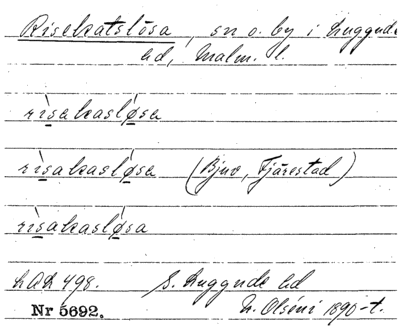 Risekatslösa, sn o. by i Luggude
hd, Malm. l.
rìsakaslǿsa
rìsakaslǿsa (Bjuv, Fjärestad)
rìsakaslǿsa
LAL 498. S. Luggude hd
Nr 5692. N. Olséni 1890-t.